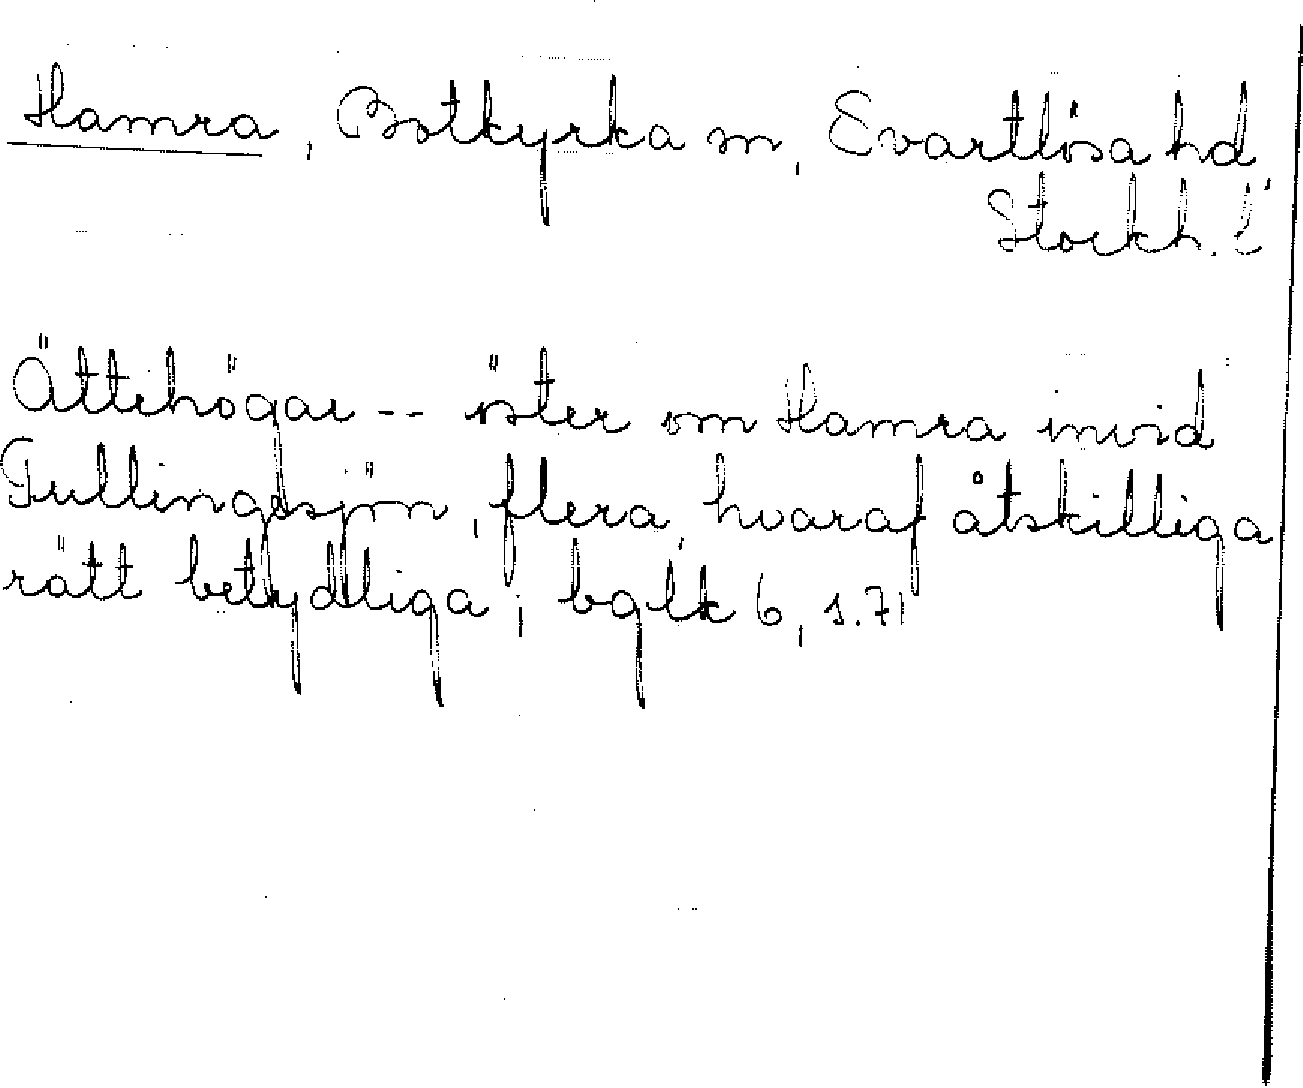 Hamra, Botkyrka sn, Svartlösa hd
Stockh. l
Ättehögar -- öster om Hamra invid
Tullingesjön, flera, hvaraf åtskilliga
rätt betydliga; bglk 6, s. 71